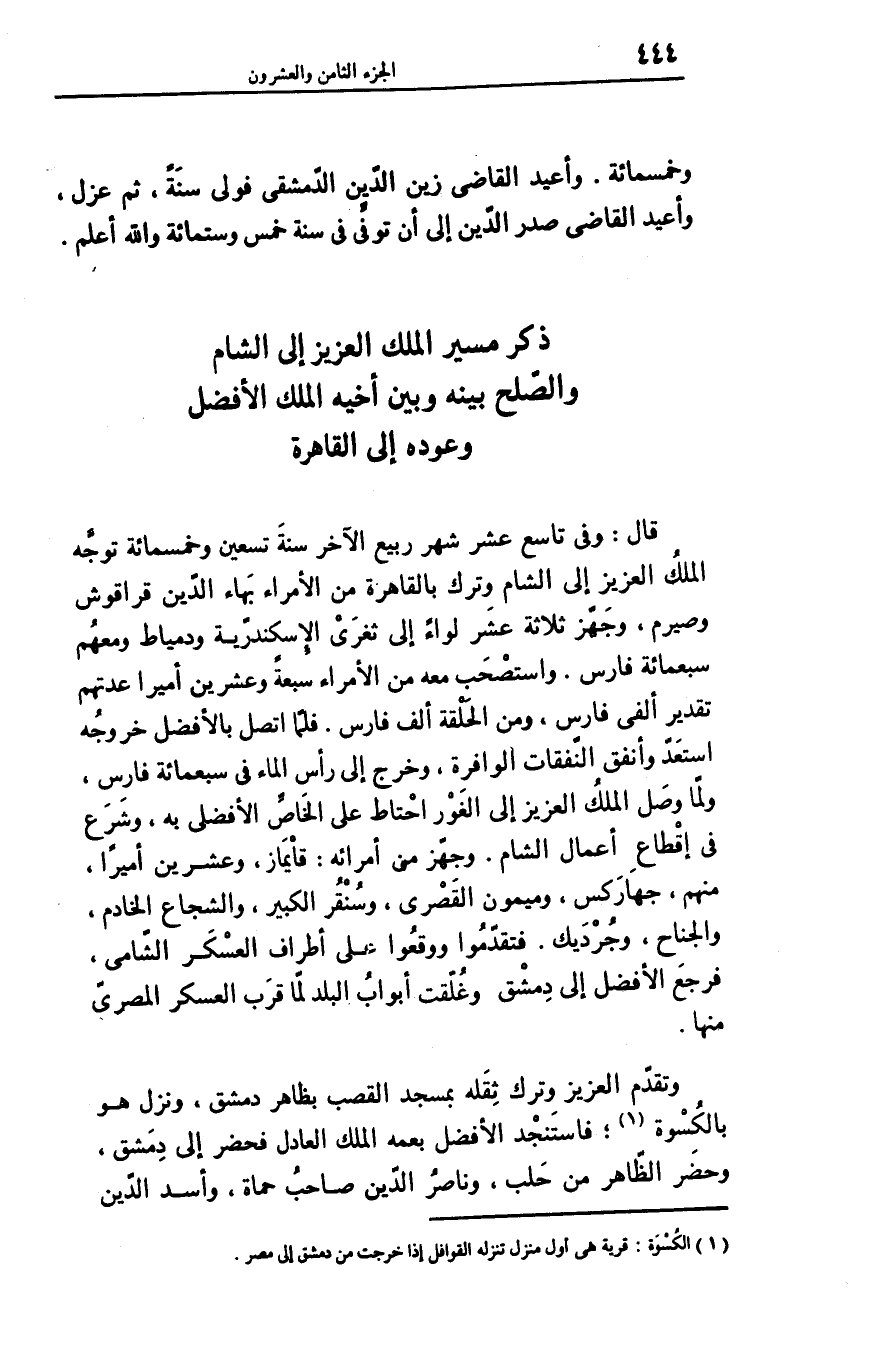 ٤٤٤
الجزء الثامن والعشرون
وخمسمائة . وأعيد القاضى زين الدّين الدّمشقى فولى سنَةً ، ثم عزل ،
وأعيد القاضى صدر الدّين إلى أن توفِّى فى سنة خمس وستمائة والله أعلم .
ذكر مسير الملك العزيز إلى الشام
والصّلح بينه وبين أخيه الملك الأفضل
وعوده إلى القاهرة
قال : وفى تاسع عشر شهر ربيع الآخر سنةَ تسعين وخمسمائة توجَّه
الملكُ العزيز إلى الشام وترك بالقاهرة من الأمراء بَهاء الدّين قراقوش
وصيرم ، وجَهّز ثلاثة عشَر لواءً إلى ثغرَىْ الإسكندرّيـة ودمياط ومعهُم
سبعمائة فارس . واستصْحَب معه من الأمراء سبعةً وعشرين أميرا عدتهم
تقدير ألفى فارس ، ومن الحَلْقة ألف فارس . فلمّا اتصل بالأفضل خروجُه
استعَدّ وأنفق النّفقات الوافرة ، وخرج إلى رأس الماء فى سبعمائة فارس ،
ولمّا وصَل الملكُ العزيز إلى الغَوْر احْتاط على الخَاصِّ الأفضلى به ، وشَرَع
فى إقْطاعِ أعمال الشام . وجهّز من أمرائه : قاْيمَاز ، وعشـرين أميرًا ،
منهم ، جهاَركس ، وميمون القَصْرى ، وسُنْقُر الكبير ، والشجاع الخادم ،
والجناح ، وجُرْدَيك . فتقدّمُوا ووقعُوا على أطراف العسْكَـر الشّامى ،
فرجعَ الأفضل إلى دِمشْق وغُلّقت أبوابُ البلد لمّا قرَب العسكر المصرىّ
منها .
وتقدّم العزيز وترك ثِقَله بمسجد القصب بظاهر دمشق ، ونزل هـو
بالكُسْوة (١) ؛ فاستَنجْد الأفضل بعمه الملك العادل فحضر إلى دِمَشق ،
وحضَر الظّاهر من حَلب ، وناصرُ الدّين صـاحبُ حماة ، وأسـد الدّين
(١) الكُسْوَة : قرية هى أول منزل تنزله القوافل إذا خرجت من دمشق إلى مصر .